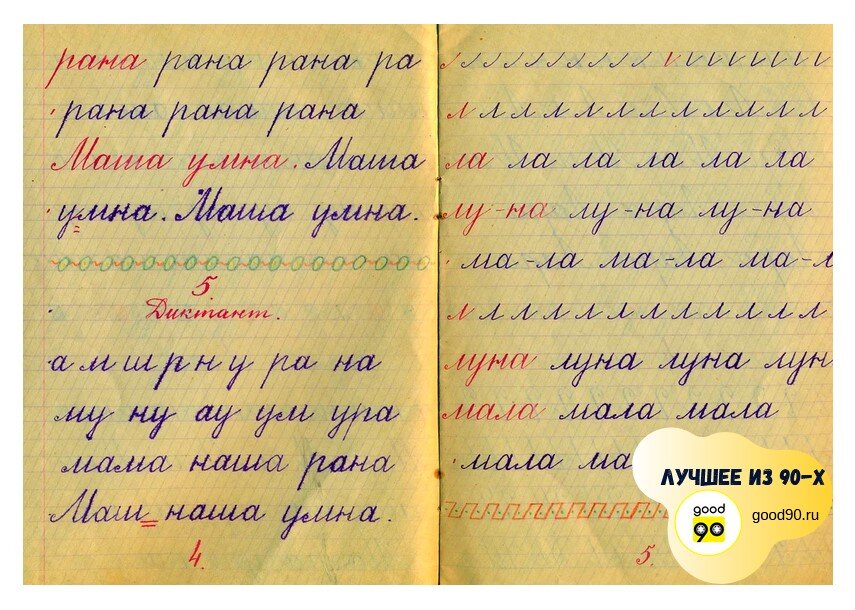 рана рана рана ра
рана рана рана
Маша умна. Маша
умна. Маша умна.
5
Диктант.
а м ш р н у ра на
му ну ау ум ура
мама наша рана
Маш наша умна.
4.
л л л л л л л л л л л л
ла ла ла ла ла ла
лу-на лу-на лу-на
ма-ла ма-ла ма-л
л л л л л л л л л л л л
луна луна луна лун
мала мала мала
мала ма
5.
ЛУЧШЕЕ ИЗ 90-Х
good
90
good90.ru